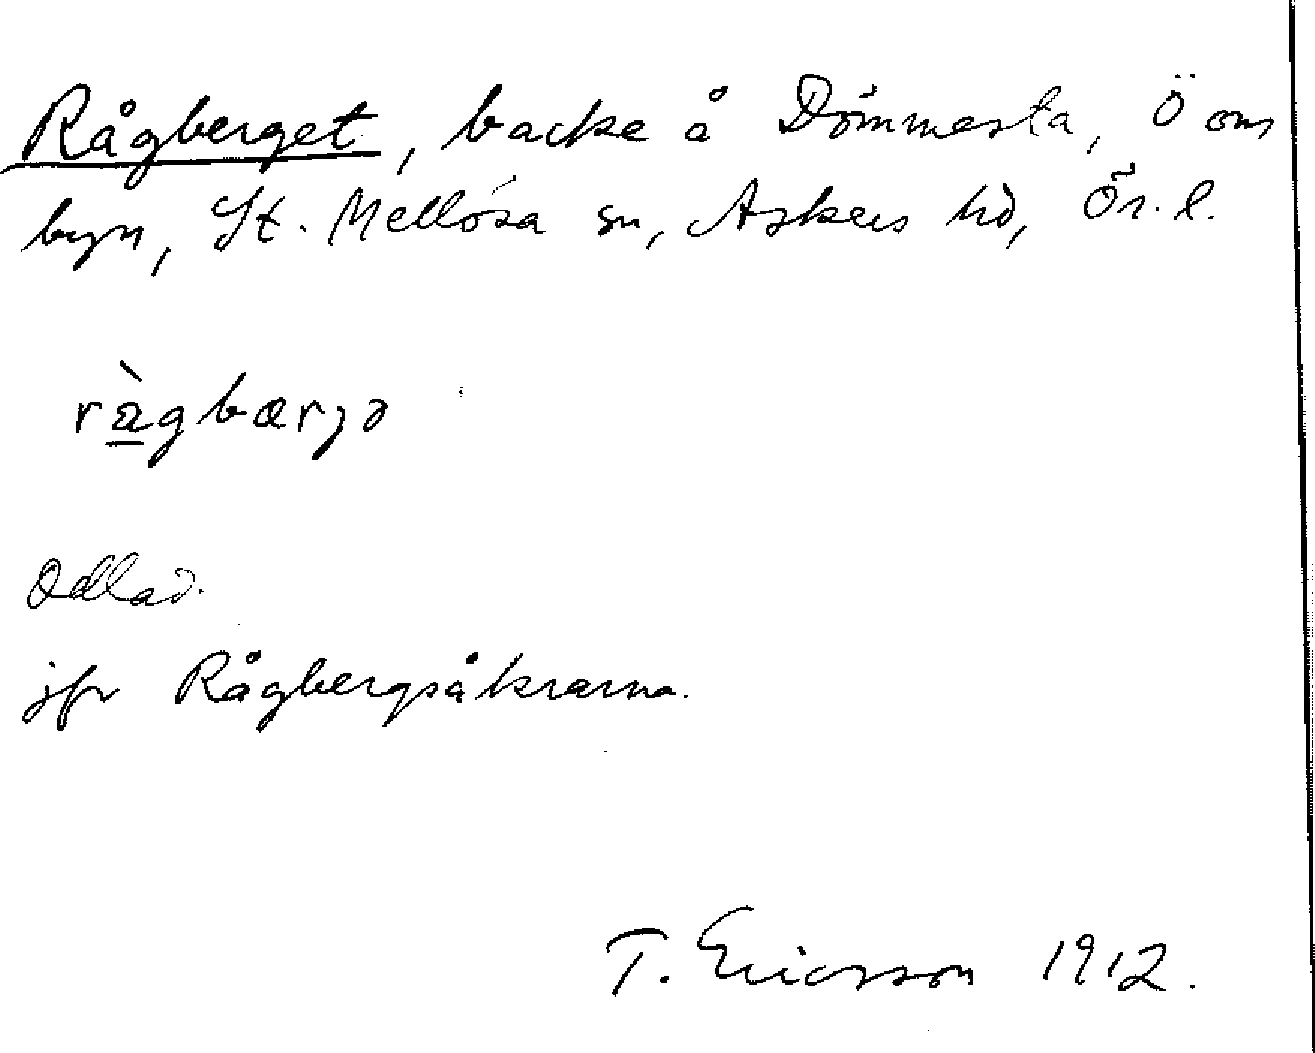 Rågberget, backe å Dömmesta, Ö om
byn, St. Mellösa sn, Askers hd, Ör. l.
ràgbærjə
Odlad.
jfr Rågbergsåkrarna.
T. Ericsson 1912.